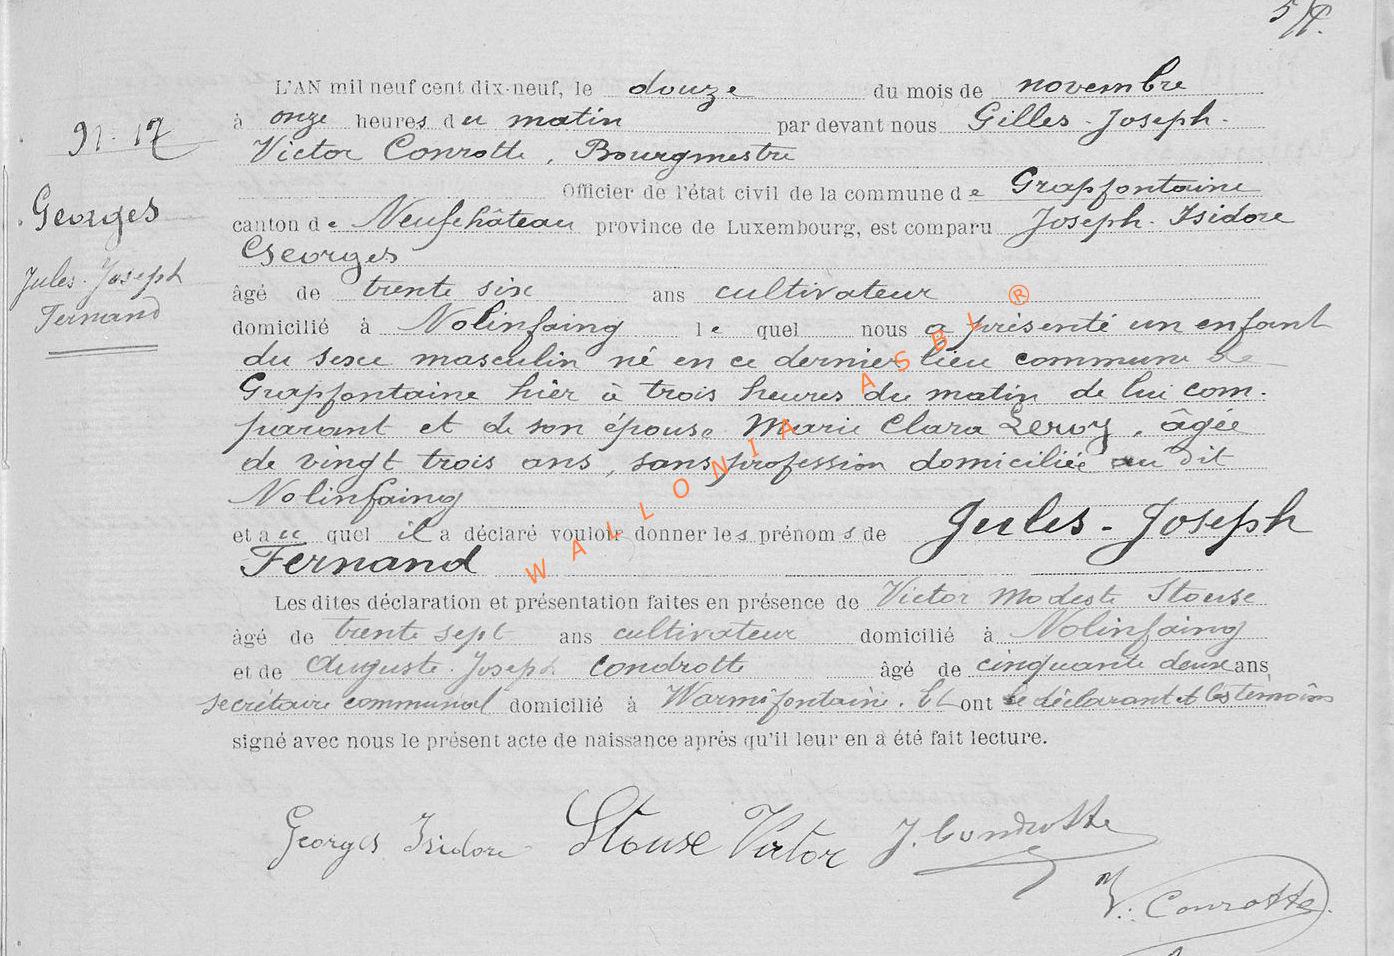 L'AN mil neuf cent dix-neuf, le douze du mois de novembre
à onze heures du matin par devant nous Gilles-Joseph-
N. 17
Victor Conrotte, Bourgmestre
Officier de l'état civil de la commune de Grapfontaine
Georges
canton de Neufchâteau province de Luxembourg, est comparu Joseph-Isidore
Georges
Jules-Joseph
Fernand
âgé de trente six ans cultivateur
domicilié à Nolinfaing le quel nous a présenté un enfant
du sexe masculin né en ce dernier lieu commune de
Grapfontaine hier à trois heures du matin de lui com-
parant et de son épouse Marie Clara Leroy, âgée
de vingt trois ans, sans profession domiciliée au dit
Nolinfaing
et au quel il a déclaré vouloir donner les prénoms de Jules-Joseph
Fernand
WALLONIA ASBL ®
Les dites déclaration et présentation faites en présence de Victor Modeste Stouse
âgé de trente sept ans cultivateur domicilié à Nolinfaing
et de Auguste-Joseph Condrotte âgé de cinquante deux ans
secrétaire communal domicilié à Warmifontaine. Et ont le déclarant et les témoins
signé avec nous le présent acte de naissance après qu'il leur en a été fait lecture.
Georges Isidore Stouse Victor J. Condrotte
V. Conrotte